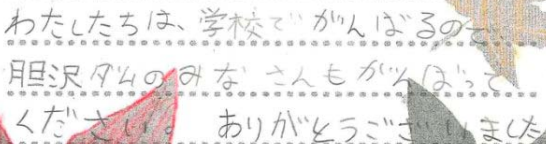 わたしたちは、学校でがんばるので、
胆沢ダムのみなさんもがんばって
ください。 ありがとうございました